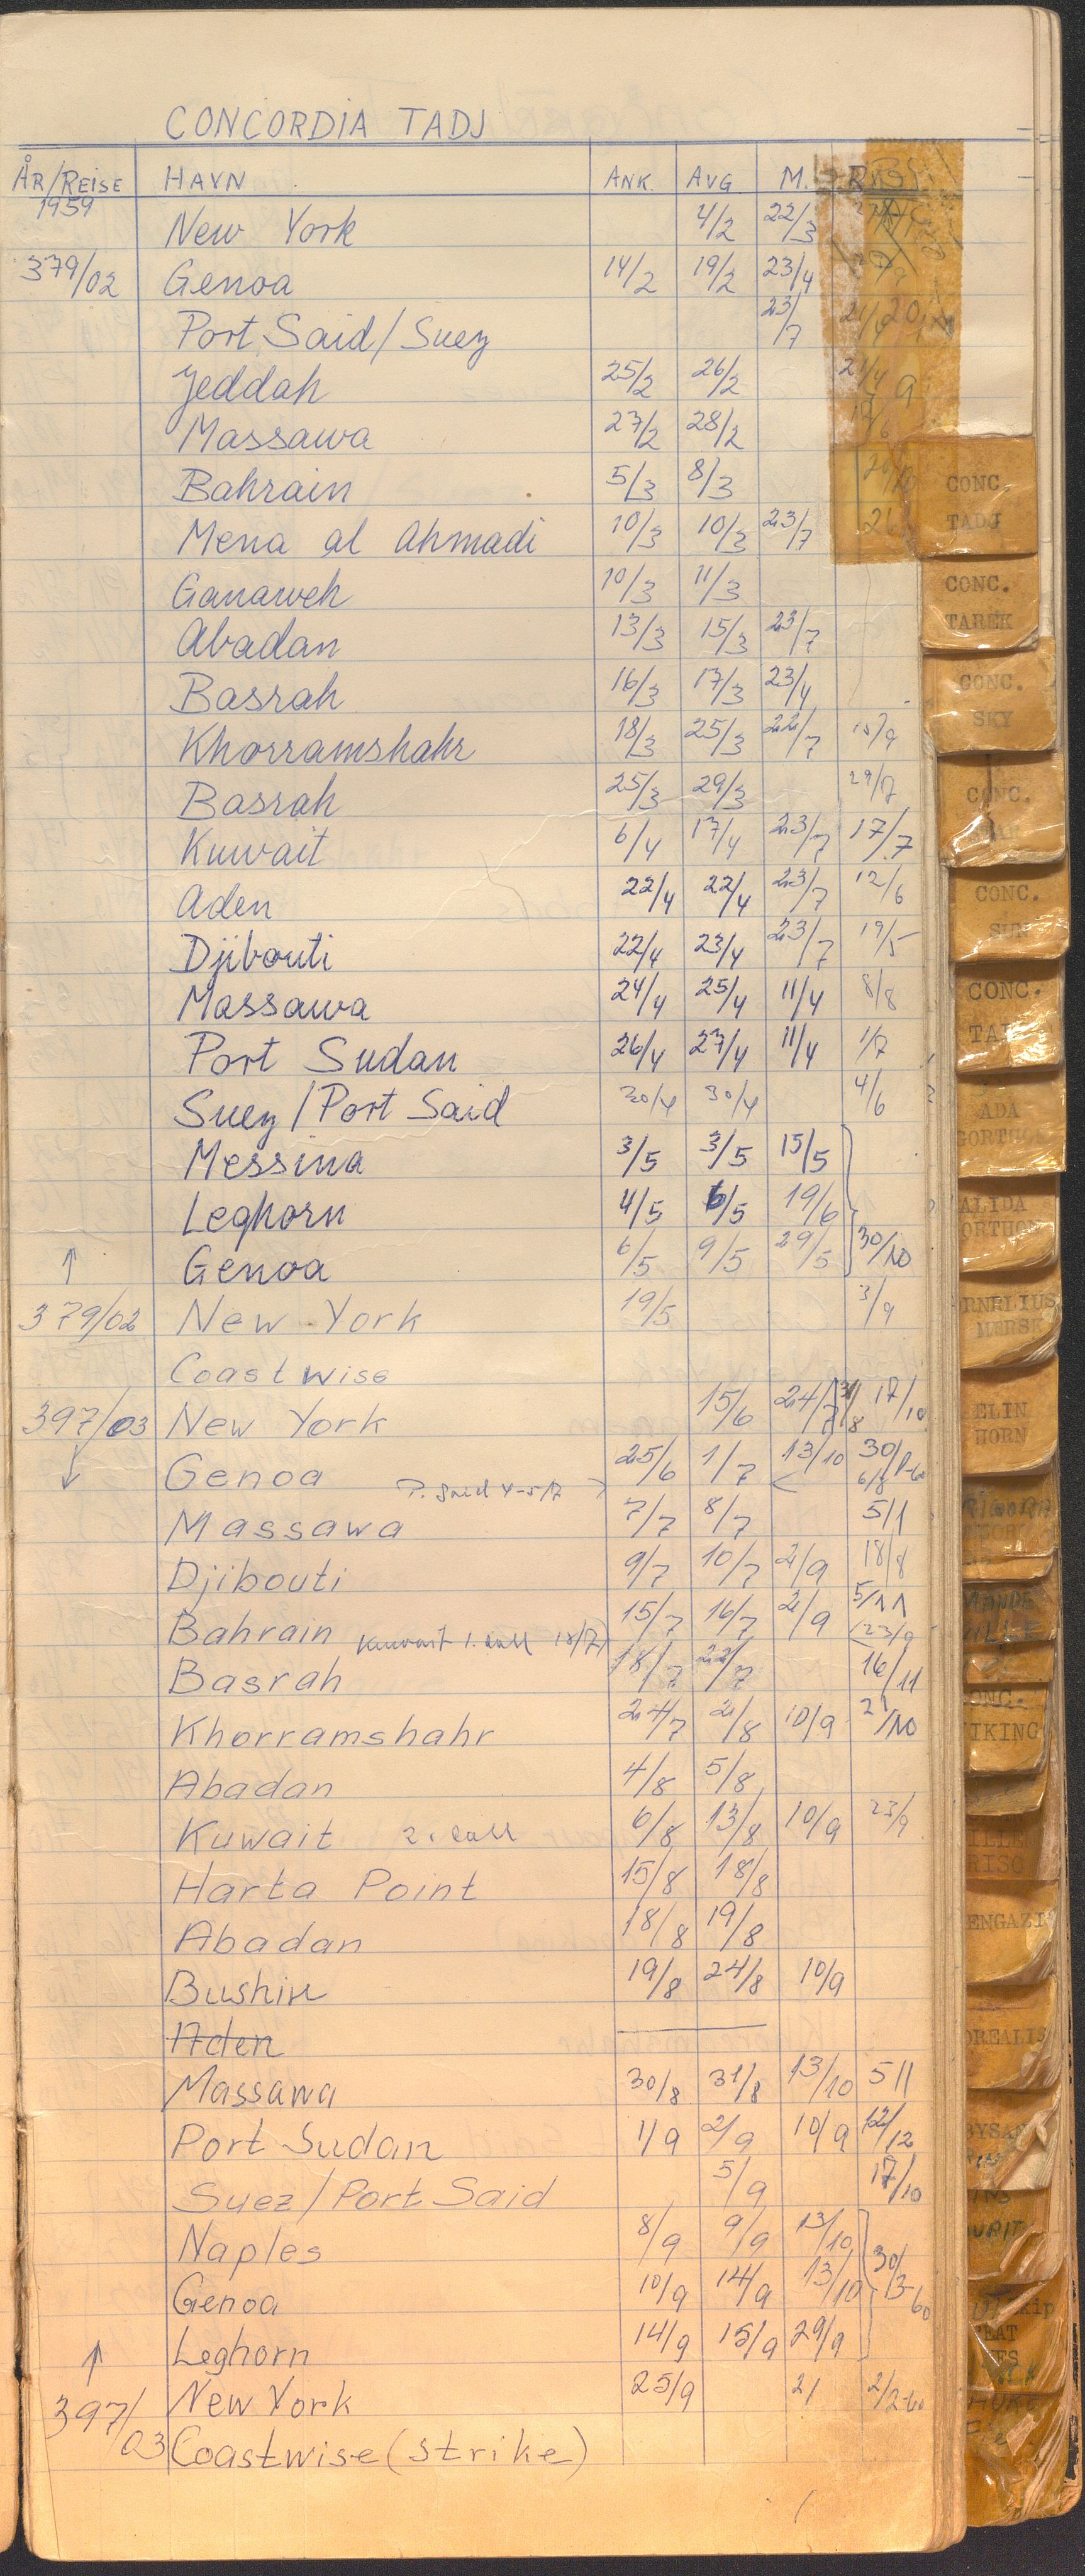 CONCORDIA TADJ
ÅR/REISE HAVN ANK. AVG M.
1959
New York 4/2 22/3
379/02 Genoa 14/2 19/2 23/4
Port Said/Suez 23/7
Jeddah 25/2 26/2
Massawa 27/2 28/2
Bahrain 5/3 8/3
Mena al Ahmadi 10/3 10/3 23/7
Ganaweh 10/3 11/3
Abadan 13/3 15/3 23/7
Basrah 16/3 17/3 23/4
Khorramshahr 18/3 25/3 22/7 15/9
Basrah 25/3 29/3 29/7
Kuwait 6/4 17/4 23/7 17/7
Aden 22/4 22/4 23/7 12/6
Djibouti 22/4 23/4 23/7 19/5
Massawa 24/4 25/4 11/4 8/8
Port Sudan 26/4 27/4 11/4 1/7
Suez/Port Said 30/4 30/4 4/6
Messina 3/5 3/5 15/5
Leghorn 4/5 6/5 19/6
↑ Genoa 6/5 9/5 29/5 30/10
379/02 New York 19/5 3/9
Coastwise
397/03 New York 15/6 24/7 17/10
↓ Genoa P. Said 4-5/7 25/6 1/7 13/10 30/ 6/8
Massawa 7/7 8/7 5/1
Djibouti 9/7 10/7 2/9 18/8
Bahrain 15/7 16/7 2/9 5/11
Kuwait 1. call 18/7 23/9
Basrah 18/7 22/7 16/11
Khorramshahr 24/7 2/8 10/9 21/10
Abadan 4/8 5/8
Kuwait 2. call 6/8 13/8 10/9 23/9
Harta Point 15/8 18/8
Abadan 18/8 19/8
Bushire 19/8 24/8 10/9
Aden
Massawa 30/8 31/8 13/10 5/1
Port Sudan 1/9 2/9 10/9 12/12
Suez/Port Said 5/9 17/10
Naples 8/9 9/9 13/10
Genoa 10/9 14/9 13/10 30/3-60
↑ Leghorn 14/9 15/9 29/9
397/03 New York 25/9 21 2/2-60
Coastwise (strike)
CONC.
TADJ
CONC.
TAREK
CONC.
SKY
CONC.
CONC.
CONC.
ADA
GORTHON
ALIDA
GORTHON
CORNELIUS
MÆRSK
ELIN
HORN
CONC.
VIKING